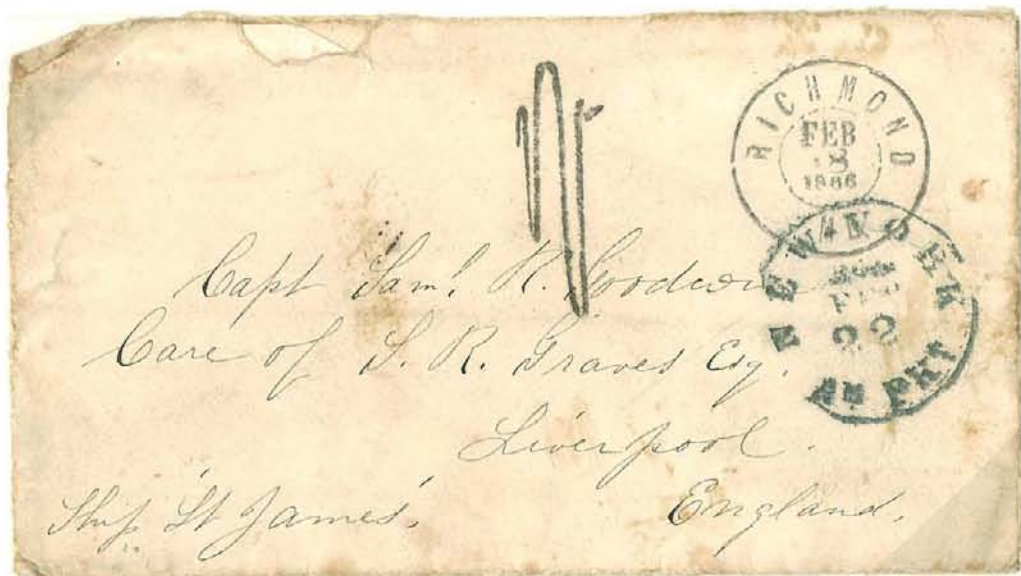 RICHMOND
FEB
1866
NEW YORK
FEB
22
AM PKT
Capt Saml. R. Goodwin
Care of S. R. Graves Esq.
Liverpool.
England.
Ship "St James".